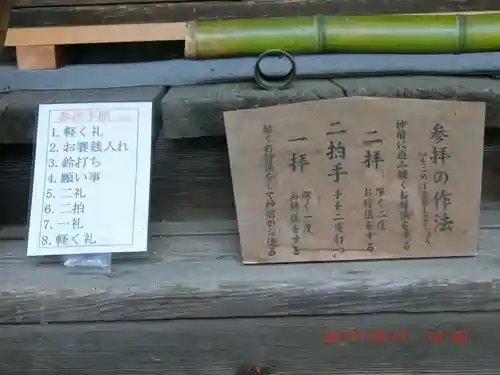 参拝手順
1. 軽く礼
2. お賽銭入れ
3. 鈴打ち
4. 願い事
5. 二礼
6. 二拍
7. 一礼
8. 軽く礼
参拝の作法
神前に進み軽くお辞儀をする
二拝 厚く二度お辞儀をする
二拍手 手を二度打つ
一拝 厚く一度お辞儀をする
軽くお辞儀をして神前から退る